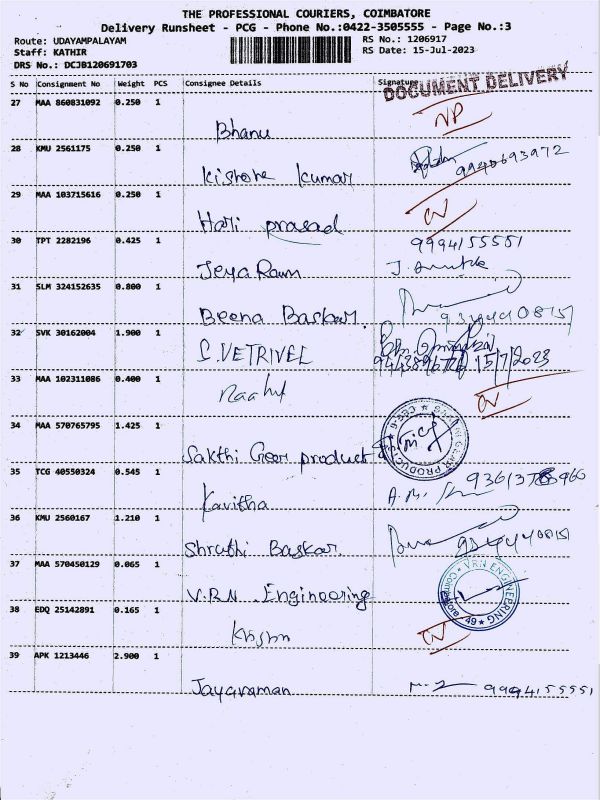 THE PROFESSIONAL COURIERS, COIMBATORE
Delivery Runsheet - PCG - Phone No.:0422-3505555 - Page No.:3
Route: UDAYAMPALAYAM RS No.: 1206917
Staff: KATHIR RS Date: 15-Jul-2023
DRS No.: DCJB120691703
S No Consignment No Weight PCS Consignee Details Signature
DOCUMENT DELIVERY
27 MAA 860831092 0.250 1
Bhanu NP
28 KMU 2561175 0.250 1
Kishore kumar 9940693972
29 MAA 103715616 0.250 1
Hari prasad
30 TPT 2282196 0.425 1 9994155551
Jeya Ram J.
31 SLM 324152635 0.800 1
Beena Baskar
32 SVK 30162004 1.900 1
S. VETRIVEL 15/7/2023
33 MAA 102311086 0.400 1
34 MAA 570765795 1.425 1
Sakthi Gear product
35 TCG 40550324 0.545 1
Kavitha A.M.
36 KMU 2560167 1.210 1
Shruthi Baskar
37 MAA 570450129 0.065 1
V.R.N. Engineering VRN ENGINEERING
38 EDQ 25142891 0.165 1
39 APK 1213446 2.900 1
Jayaraman 9994155551